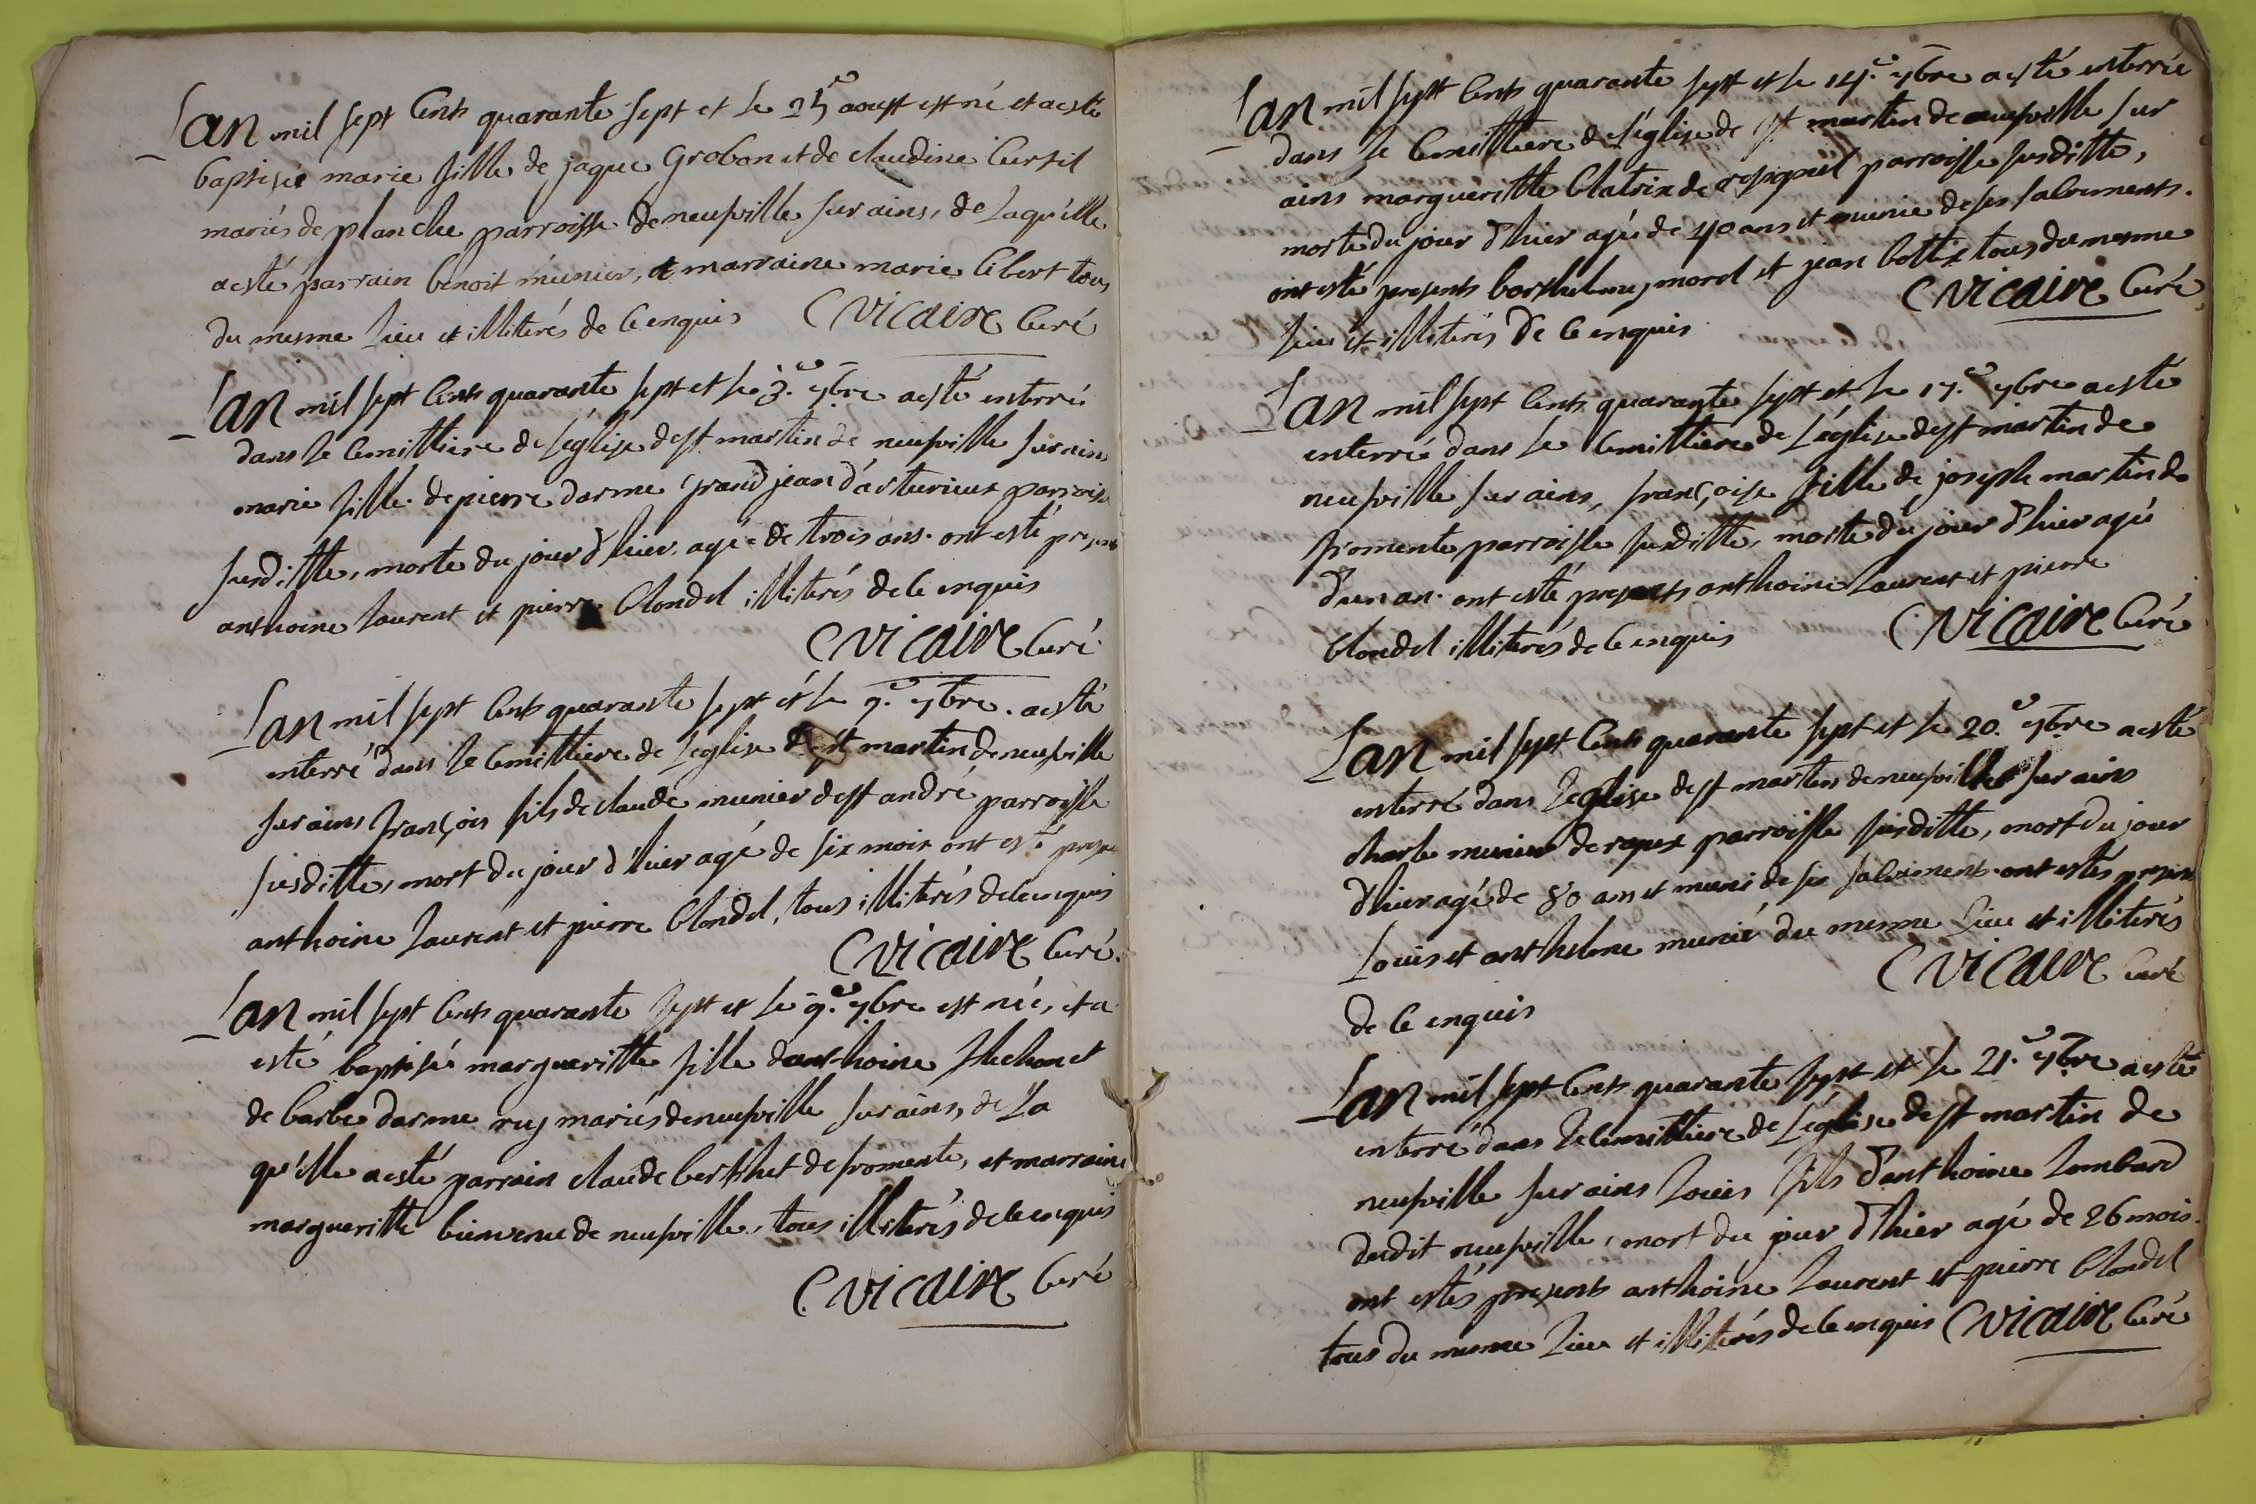 Lan mil sept Cents quarante sept et le 25e aoust est né et a esté
baptisée marie fille de jaque Grobon et de claudine Curtil
mariés de planche parroisse de neufville sur ains, de laquélle
a esté parrain benoit munier, et marraine marie Cibert tous
du mesme lieu et illiterés de ce enquis C Vicaire Curé
Lan mil sept Cents quarante sept et le 3.e 7bre a esté enterré
dans le Cemittiere de l'église de st martin de neufville sur ain
marie fille de pierre darme grand jean d'arturieux parroisse
susditte, morte du jour d'hier, agée de trois ans. ont esté presents
anthoine laurent et pierre blondel illiterés de ce enquis
C Vicaire Curé
Lan mil sept Cents quarante sept et le 9.e 7bre. a esté
enterré dans le Cemittiere de l'eglise de st martin de neufville
sur ains françois fils de claude munier de st andré parroisse
susditte, mort du jour d'hier agé de six mois ont esté presents
anthoine laurent et pierre blondel, tous illiterés de ce enquis
C Vicaire Curé.
Lan mil sept Cents quarante sept et le 9.e 7bre est née, et a
esté baptisée margueritte fille d'anthoine et
de barbe darme ruy mariés de neufville sur ains, de La
qu'elle a esté parrain claude berthet de fromente, et marraine
margueritte bienvenu de neufville, tous illiterés de ce enquis
C Vicaire Curé
Lan mil sept Cents quarante sept et le 14.e 7bre a esté enterrée
dans le Cemittiere de l'église de st martin de neufville sur
ains marguerette Clatrix de resignel parroisse susditte,
morte du jour d'hier agée de 40 ans et munie de ses sacrements.
ont esté presents barthelemy morel et jean bottex tous du mesme
lieu et illiterés de ce enquis C Vicaire Curé
Lan mil sept Cents quarante sept et le 17.e 7bre a esté
enterré dans le Cemittiere de l'église de st martin de
neufville sur ains, françoise fille de joseph martin de
fromente parroisse susditte, morte du jour d'hier agée
d'un an. ont esté presents anthoine laurent et pierre
blondel illiterés de ce enquis C Vicaire Curé
Lan mil sept Cents quarante sept et le 20.e 7bre a esté
enterré dans l'eglise de st martin de neufville sur ains
charle munier de rapex parroisse susditte, mort du jour
d'hier agé de 80 ans et muni de ses sacrements. ont estés presents
Louis et anthelme munier du mesme lieu et illiterés
de ce enquis C Vicaire Curé
Lan mil sept Cents quarante sept et le 21.e 7bre a esté
enterré dans le cemittiere de l'église de st martin de
neufville sur ains louis fils d'anthoine lombard
dudit neufville, mort du jour d'hier agé de 26 mois.
ont estés presents anthoine laurent et pierre blondel
tous du mesme lieu et illiterés de ce enquis C Vicaire Curé